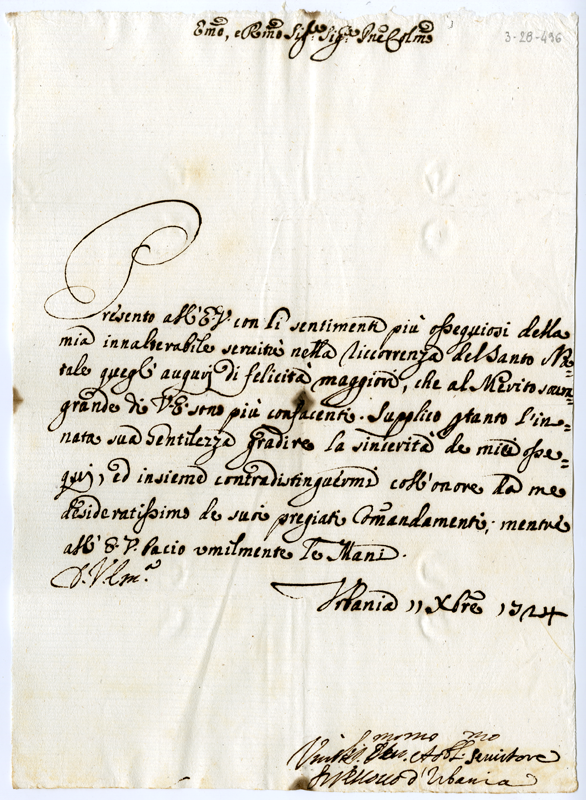 Emo, e Rmo Sig.r Sig.r Pne Colmo
3-28-496
Presento all'E.V. con li sentimenti più ossequiosi della
mia innalterabile seruitù nella riccorrenza del Santo Na=
tale quegli augurj di felicità maggiori, che al Merito souu=
grande di V.E. sono più confacenti. Supplico ptanto l'in=
nata sua Gentilezza gradire la sincerità de miei osse=
quj, ed insieme contradistinguermi coll'onore da me
desideratissimo de suoi pregiati Comandamenti; mentre
all'E.V. bacio umilmente le Mani.
D.V.Em.a
Urbania 11 Xbre 1724
Vmilis.mo Deu.mo et Obl.mo Seruitore
d'Urbania